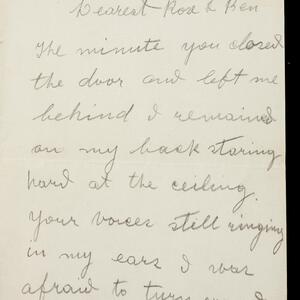 Dearest Rose & Ben
The minute you closed
the door and left me
behind I remained
on my back staring
hard at the ceiling.
Your voices still ringing
in my ears I was
afraid to turn